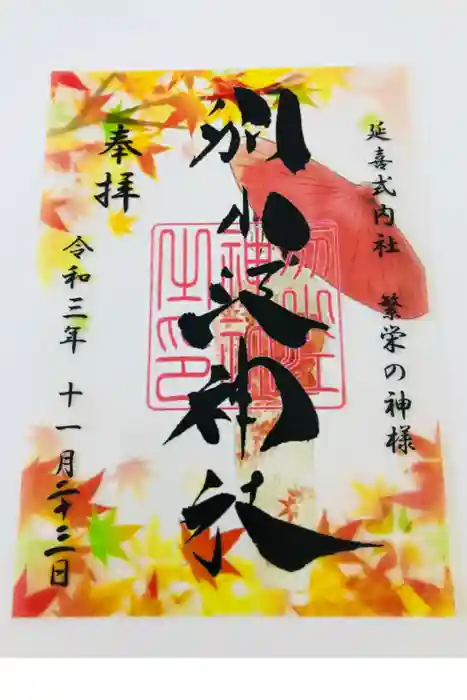 延喜式内社 繁栄の神様
別小江神社
奉拝
令和三年 十一月二十三日
別小江
神社
之印